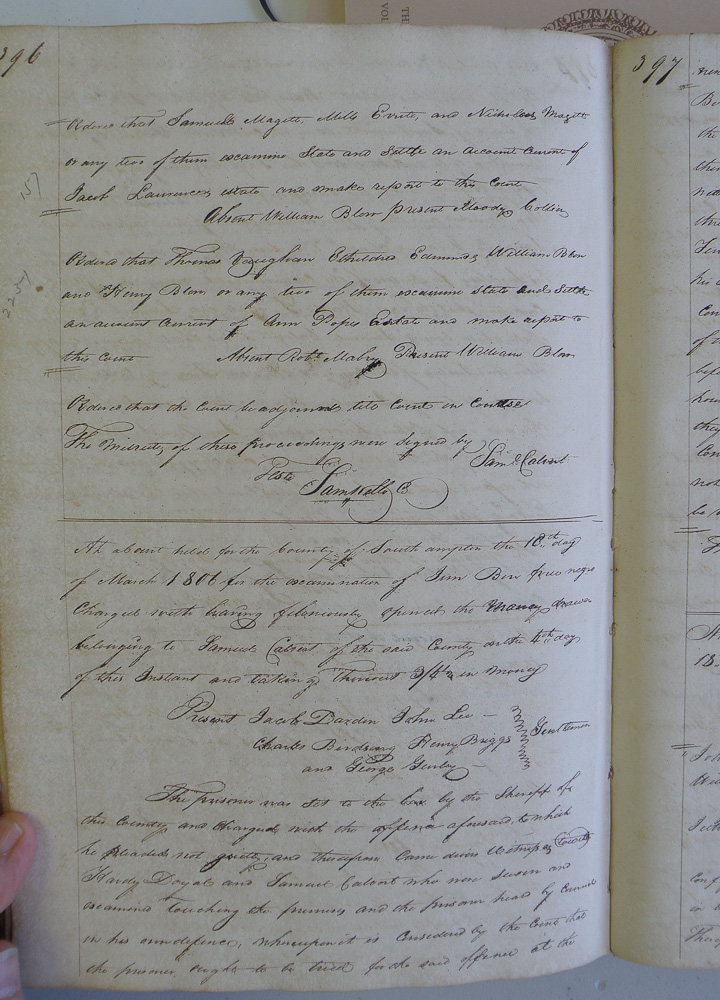 396
Ordered that Samuel Magett Mills Evrite, and Nicholas Magett
or any two of them examine State and Settle an account Current of
Jacob Laurences estate and make report to this Court
Absent William Blow present Moody Collier
Ordered that Thomas Vaughan Etheldred Edmunds William Blow
and Henry Blow or any two of them examine State and Settle
an account Current of Ann Popes Estate and make report to
this Court Absent Robt. Mabry Present William Blow
Ordered that the Court be adjourned till Court in Course
The of these proceedings were Signed by
Saml. Calvert
Teste
At a Court held for the County of Southampton the 10th day
of March 1806 for the examination of Jim Bow free negro
Charged with having feloniously opened the money drawer
belonging to Samuel Calvert of the said County on the 4th day
of this Instant and taking Thereout in money
Present Jacob Darden John Lee
Charles Birdsong Henry Briggs Gentlemen
and George Gurley
The prisoner was set to the bar by the Sheriff of
this County and Charged with the offence aforesaid to which
he pleaded not guilty, and thereupon Came divers Witnesses towit
Hardy Doyal and Samuel Calvert who were sworn and
examined touching the premises and the prisoner heard by Council
in his own defence, whereupon it is Considered by the Court that
the prisoner, ought to be tried for the said offence at the
397